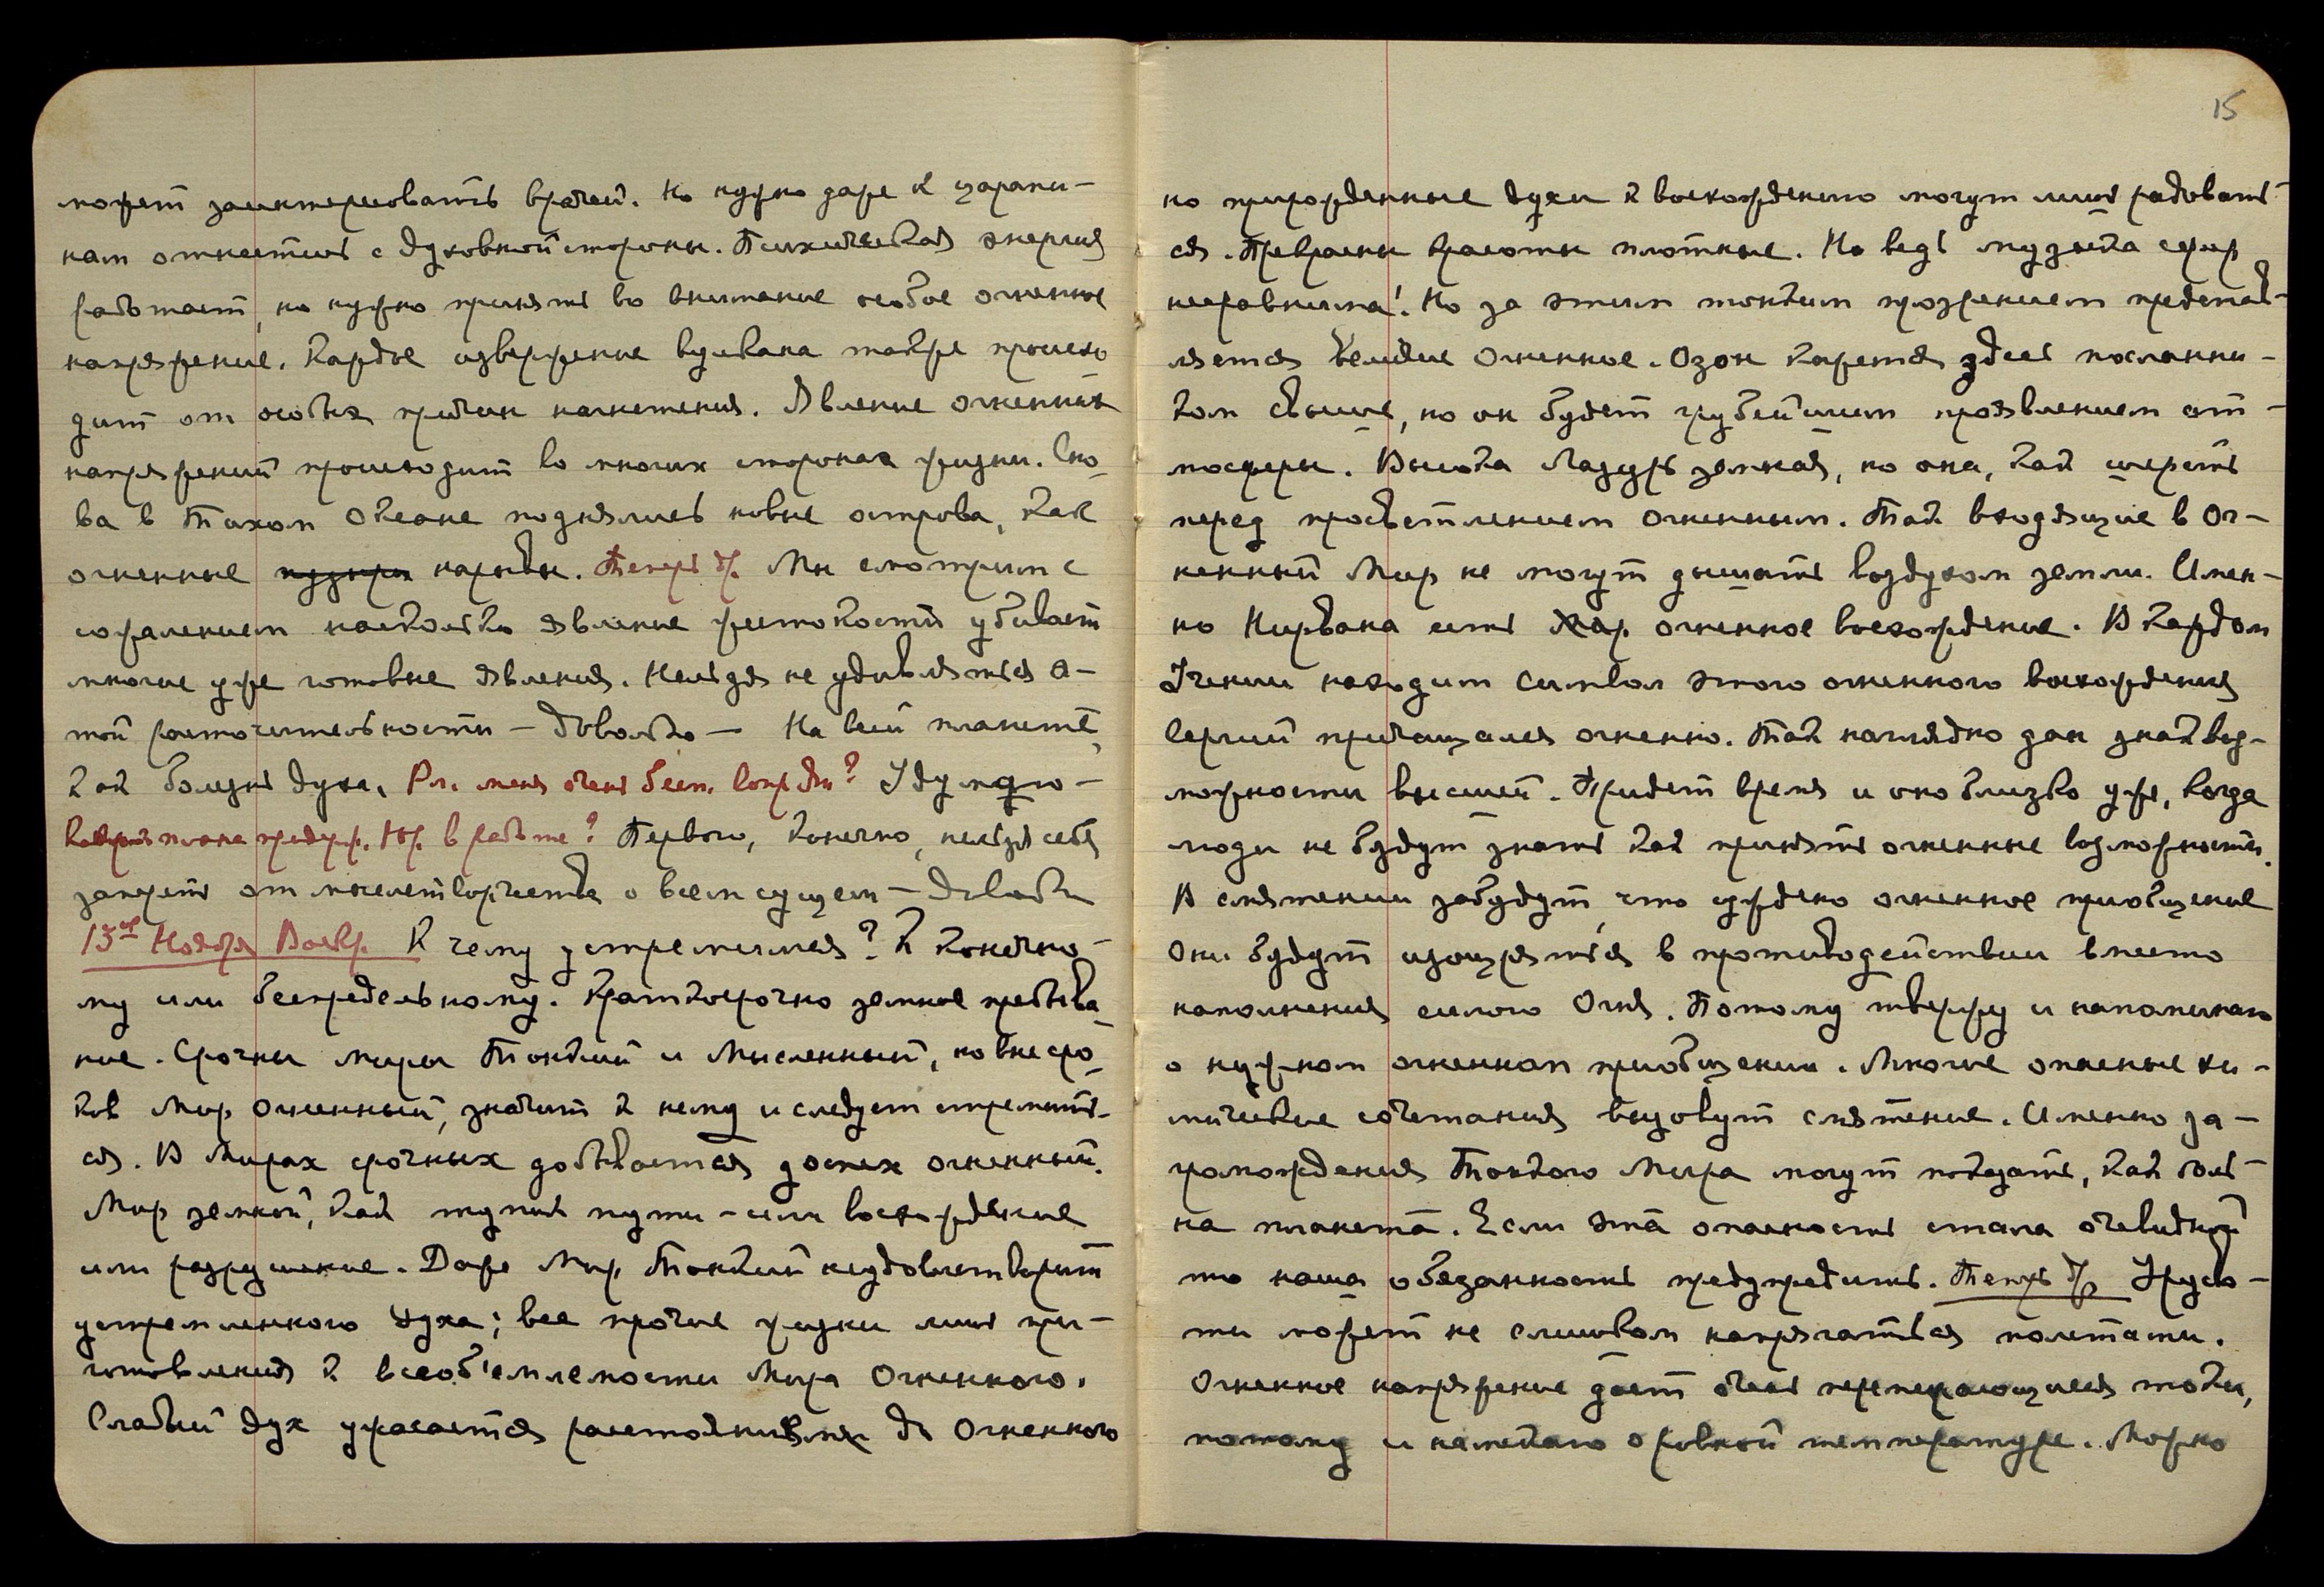 может заинтересовать врачей. Но нужно даже к царапи-
нам отнестись с духовной стороны. Психическая энергия
работает, но нужно принять во внимание особое огненное
напряжение. Каждое извержение вулкана также происхо
дит от особых причин нагнетения. Явление огненных
напряжений происходит во многих сторонах жизни. Сно-
ва в Тихом Океане поднялись новые острова, как
огненные пузыри нарывы. Теперь др. Мы смотрим с
сожалением насколько явление жестокости убивает
многие уже готовые явления. Нельзя не удивляться э-
той расточительности – довольно – На всей планете,
как болезнь духа. меня очень бесп. ? Удумаю –
в работе? Первого, конечно, нельзя себя
запереть от мыслетворчества о всем сущем – Довольно
13ое Ноября Воскр. К чему устремимся? К конечно-
му или беспредельному. Краткосрочно земное пребыва-
ние. Срочны миры Тонкий и Мысленный, но вне сро-
ков Мир Огненный, значит к нему и следует стремить-
ся. В Мирах срочных добывается доспех огненный.
Мир земной, как тупик пути – или восхождение
или разрушение. Даже Мир Тонкий неудовлетворит
устремленного духа; все прочие жизни лишь при-
готовления к всеоб'емлемости Мира Огненного.
Слабый дух ужасается расстояниями до Огненного
15
но прирожденные духи к восхождению могут лишь радовать-
ся. Прекрасны красоты плотные. Но ведь музыка сфер
несравнима! Но за этим тонким прозрением представ-
ляется Величие Огненное. Озон кажется здесь посланни-
ком свыше, но он будет грубейшим проявлением ат-
мосферы. Высока Лазурь земная, но она, как шерсть
перед просветлением Огненным. Так входящие в Ог-
ненный Мир не могут дышать воздухом земли. Имен-
но Нирвана есть Жар огненное восхождение. В каждом
Учении находим символ этого огненного восхождения
Сергий причащался огненно. Так наглядно дан знак воз-
можности высшей. Придет время и оно близко уже, когда
люди не будут знать как принять огненные возможности.
В смятении забудут, что суждено огненное приобщение
Они будут изощряться в противодействии вместо
наполнения силою Огня. Потому твержу и напоминаю
о нужном огненном приобщении. Многие опасные хи-
мические сочетания вызовут смятение. Именно за-
громождения Тонкого Мира могут показать, как боль-
на планета. Если эта опасность стала очевидной
то наша обязанность предупредить. Теперь др. Урусва-
ти может не слишком напрягаться полетами.
Огненное напряжение дает очень перемежающиеся токи,
потому и намекаю о ровной температуре. Можно